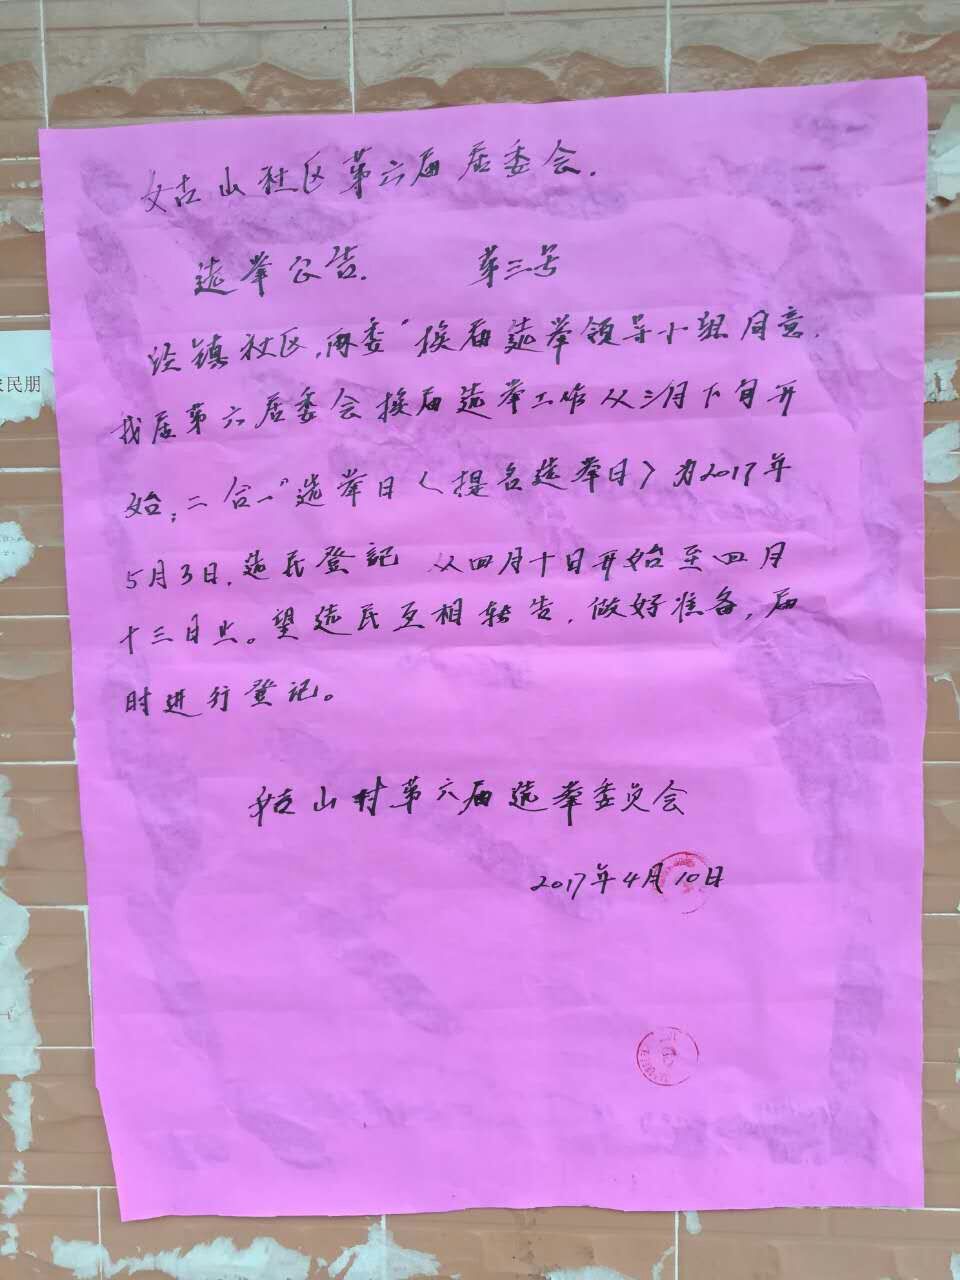 女古山社区第六届居委会.
选举公告. 第三号
经镇社区"两委"换届选举领导小组同意.
我居第六居委会换届选举工作从三月下旬开
始;二合一"选举日〈提名选举日〉为2017年
5月3日.选民登記 从四月十日开始至四月
十三日止。望选民互相转告,做好准备,届
时进行登记。
女古山村第六届选举委员会
2017年4月10日
农民朋